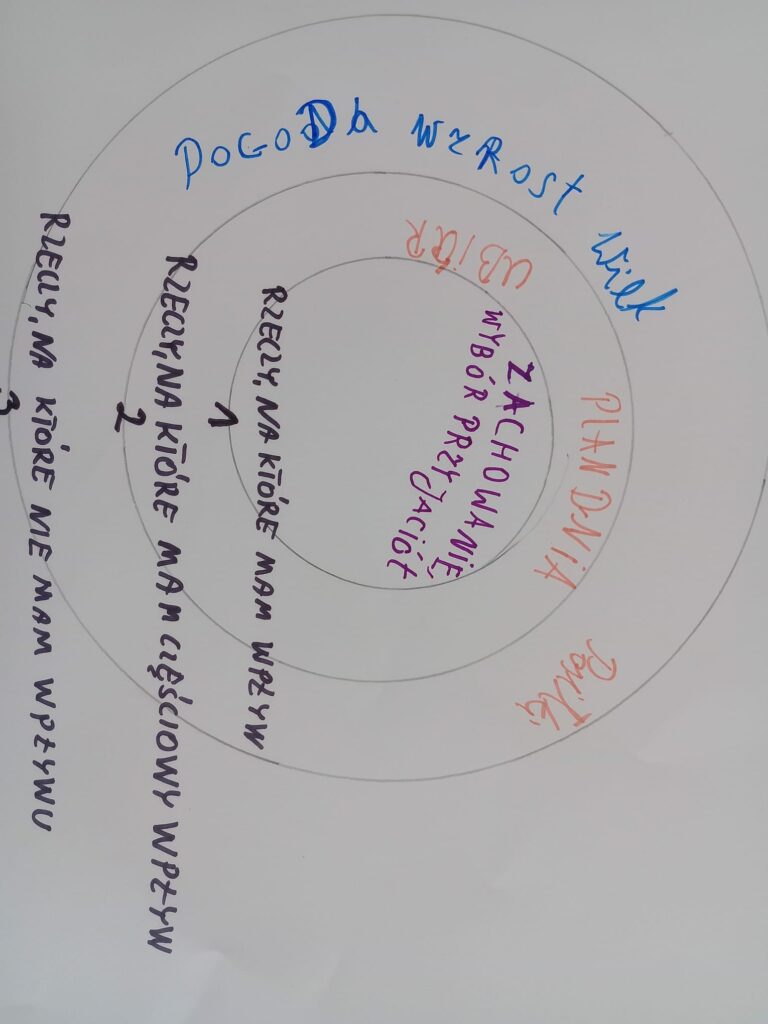 POGODA WZROST WIEK
UBIÓR
PLAN DNIA
Posiłki
ZACHOWANIĘ
WYBÓR PRZYJACIÓŁ
RZECZY, NA KTÓRE MAM WPŁYW
1
RZECZY, NA KTÓRE MAM CZĘŚCIOWY WPŁYW
2
RZECZY, NA KTÓRE NIE MAM WPŁYWU
3